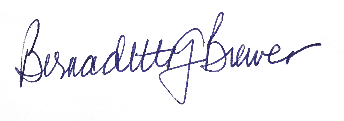 Bernadette G Brewer